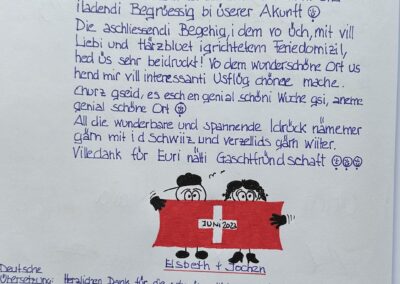 iladendi Begrüessig bi üserer Akunft
Die aschliessendi Begehig, i dem vo öich, mit vill
Liebi und Härzbluet igrichtelem Feriedomizil,
hed üs sehr beidruckt! Vo dem wunderschöne Ort us
hend mir vill interessanti Usflög chönne mache.
Churz gseid, es esch en genial schöni Wuche gsi, aneme
genial schöne Ort
All die wunderbare und spannende Idröck nämemer
gärn mit i d Schwiiz, und verzellids gärn wiiter.
Villedank för Euri nätti Gaschtfründschaft
JUNI 2023
Elsbeth + Jochen
Deutsche
Übersetzung: Herzlichen Dank für die